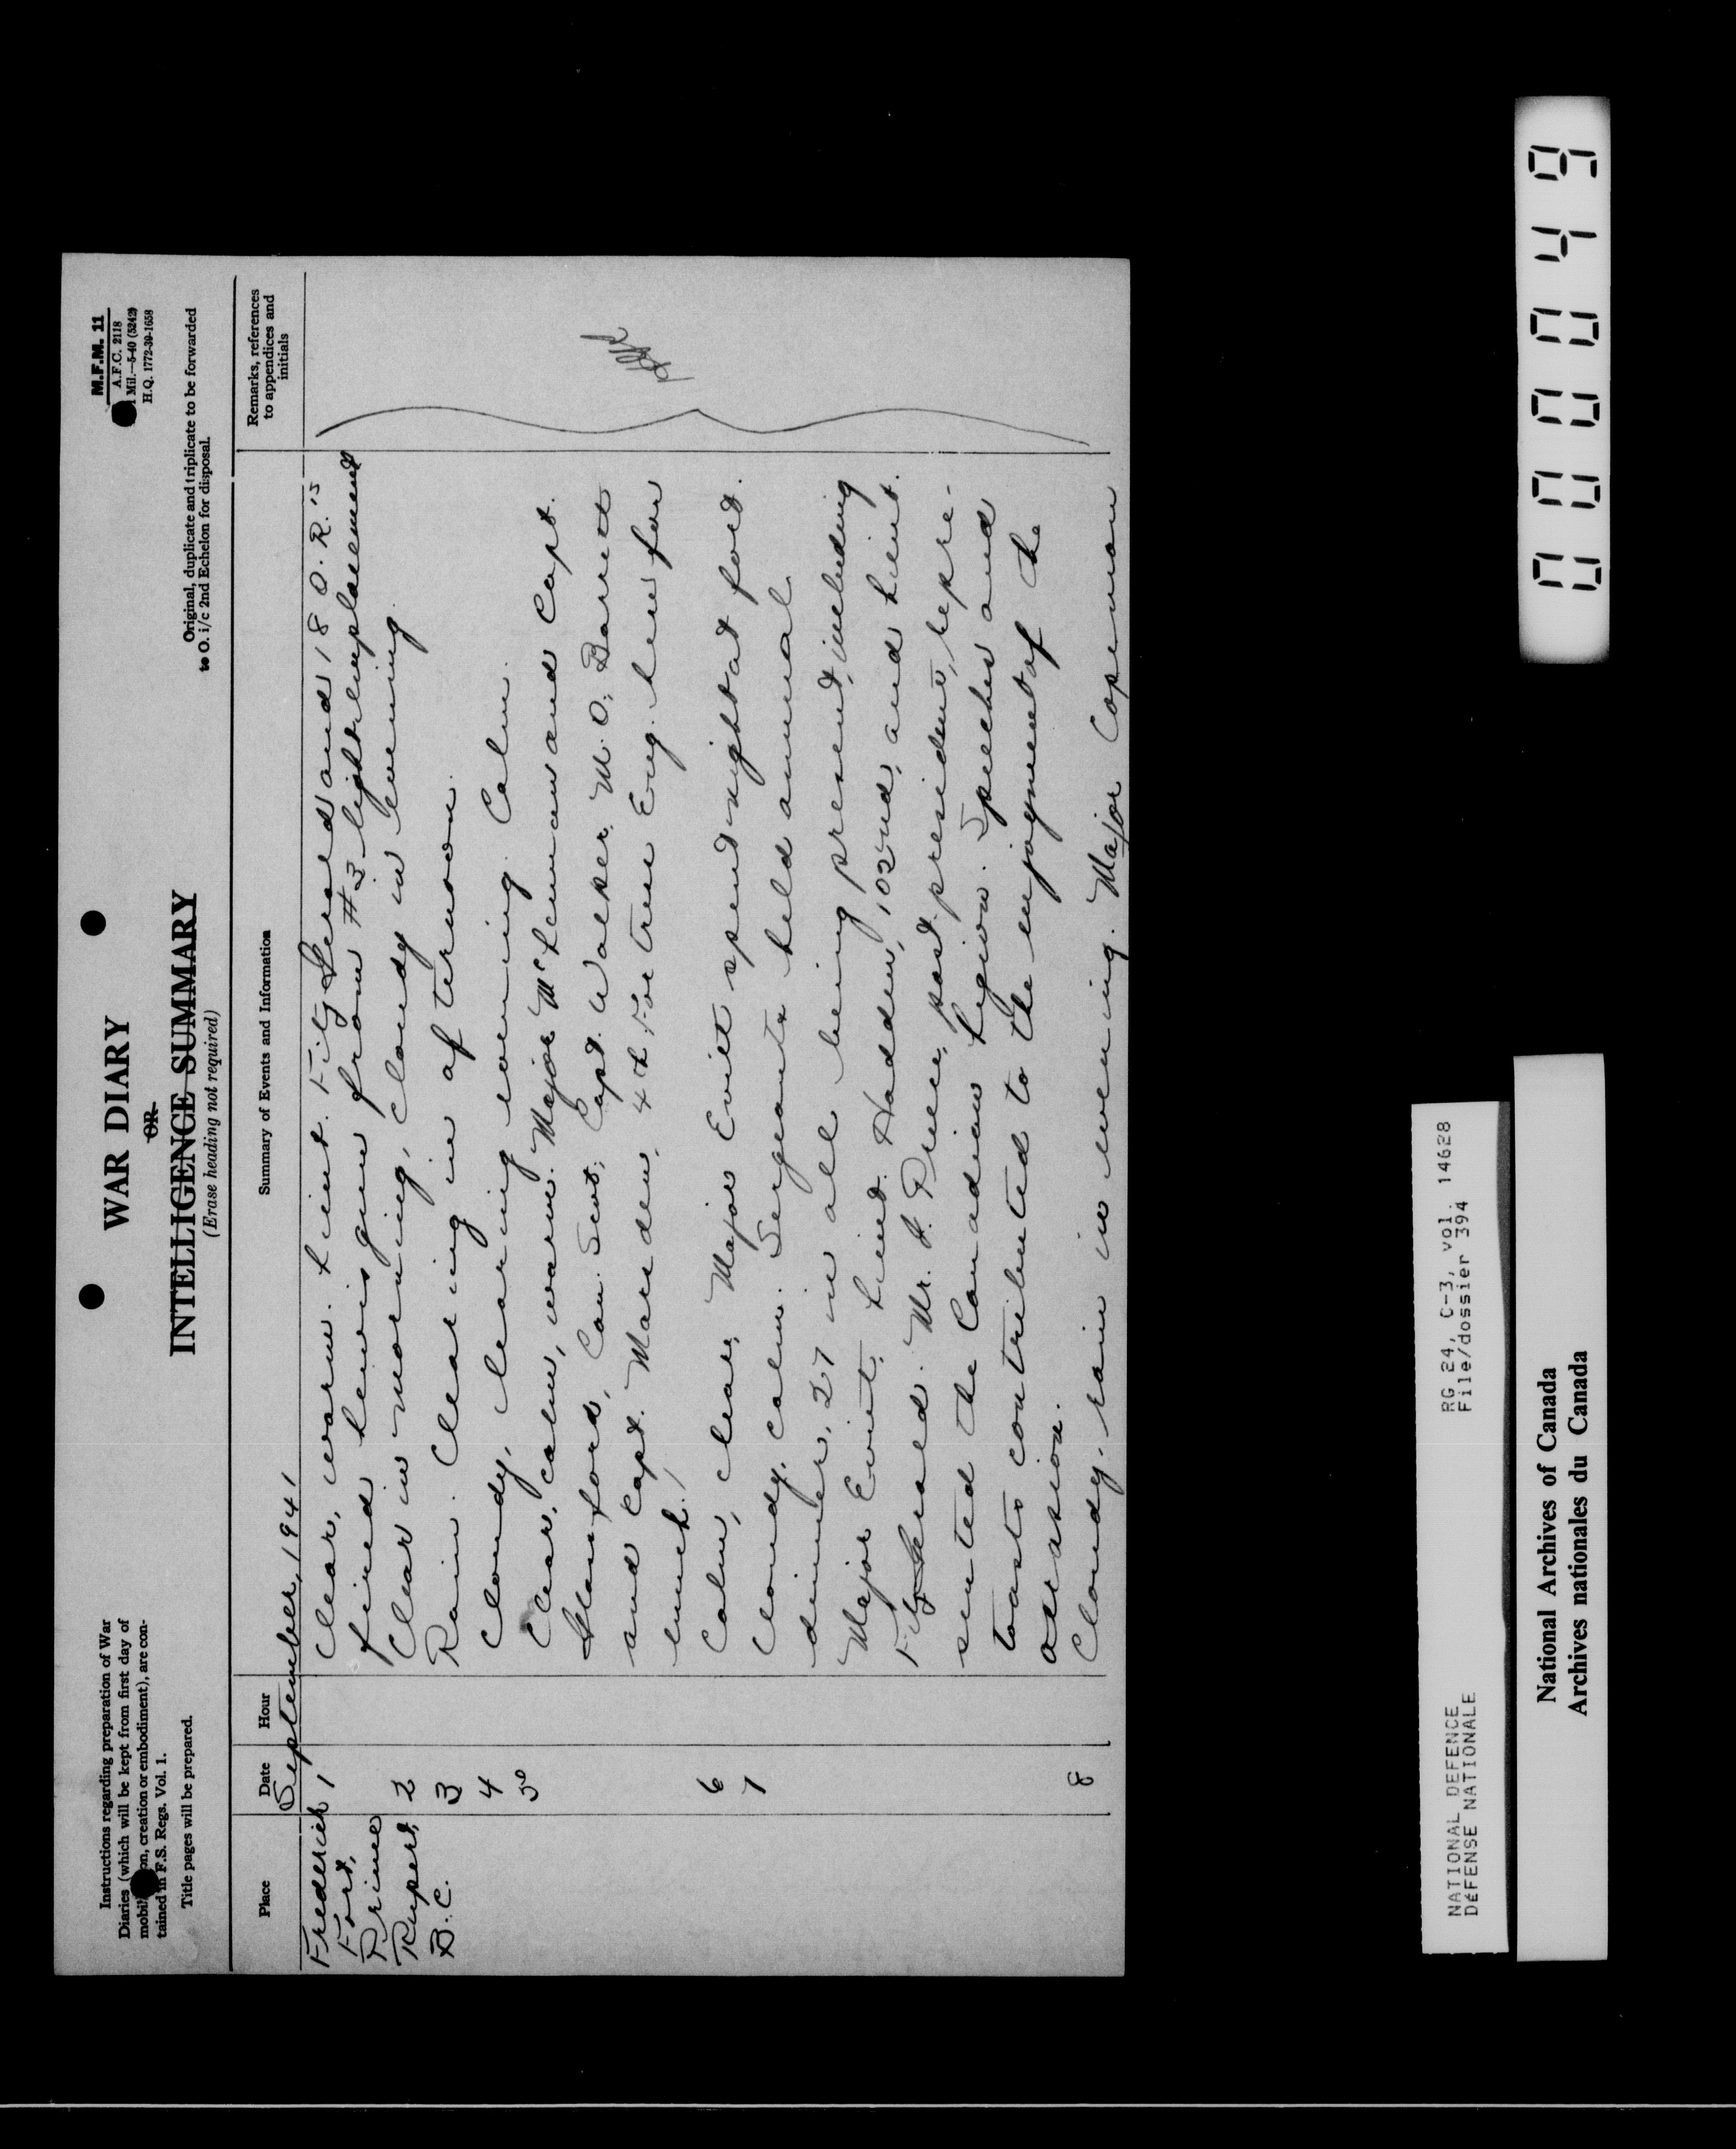 Instructions regarding preparation of War
Diaries (which will be kept from first day of
creation or embodiment), are con-
tained in F.S. Regs. Vol. 1.
Title pages will be prepared.
WAR DIARY
OR
INTELLIGENCE SUMMARY
(Erase heading not required)
M.F.M. 11
A.F.C. 2118
Mil.—5-40 (5242)
H.Q. 1772-39-1658
Original, duplicate and triplicate to be forwarded
to O. i/c 2nd Echelon for disposal.
Place Date Hour Summary of Events and Information Remarks, references
to appendices and
initials
September, 1941
Frederick 1 Clear, warm. Lieut. FitzGerald and 18 O.R.'s
Fort, fired Lewis gun from #3 light emplacement
Prince
Rupert, 2 Clear in morning, cloudy in evening.
B.C. 3 Rain. Clearing in afternoon.
4 Cloudy, clearing evening. Calm.
5 Clear, calm, warm. Major McLennan and Capt.
Can. Scot; Capt. Walker, M.O; Barrett
and Capt. Marsden, 4th Fortress Eng. here for
lunch.
6 Calm, clear, Major Evitt spent night at fort.
7 Cloudy, calm. Sergeants held annual
dinner, 27 in all being present, including
Major Evitt, Lieut. Hadden, 102nd, and Lieut.
FitzGerald. Mr. Price, past president, repre-
sented the Canadian Legion. Speeches and
toasts contributed to the enjoyment of the
occasion.
8 Cloudy, rain in evening. Major Copeman
NATIONAL DEFENCE
DÉFENSE NATIONALE
RG 24, C-3, vol. 14628
File/dossier 394
National Archives of Canada
Archives nationales du Canada
000049